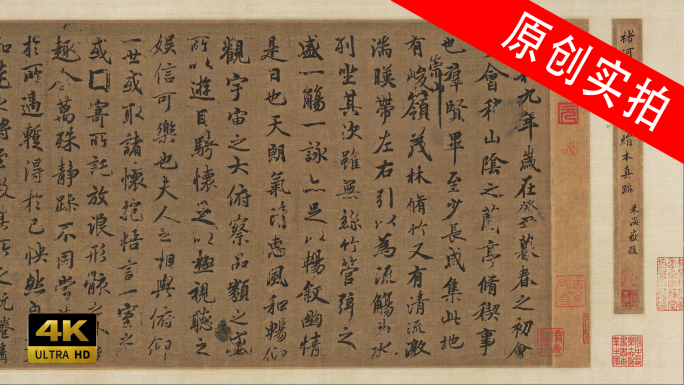 原创实拍
褚河
繪本真跡 米海嶽跋
九年歲在癸丑暮春之初會
會稽山陰之蘭亭脩稧事
也羣賢畢至少長咸集此地
崇山
有峻領茂林脩竹又有清流激
湍暎帶左右引以為流觴曲水
列坐其次雖無絲竹管弦之
盛一觴一詠亦足以暢敘幽情
是日也天朗氣清惠風和暢仰
觀宇宙之大俯察品類之盛
所以遊目騁懷足以極視聽之
娛信可樂也夫人之相與俯仰
一世或取諸懷抱悟言一室之
或因寄所託放浪形骸之
趣舍萬殊靜躁不同當
於所遇暫得於己怏然
4K
ULTRA HD